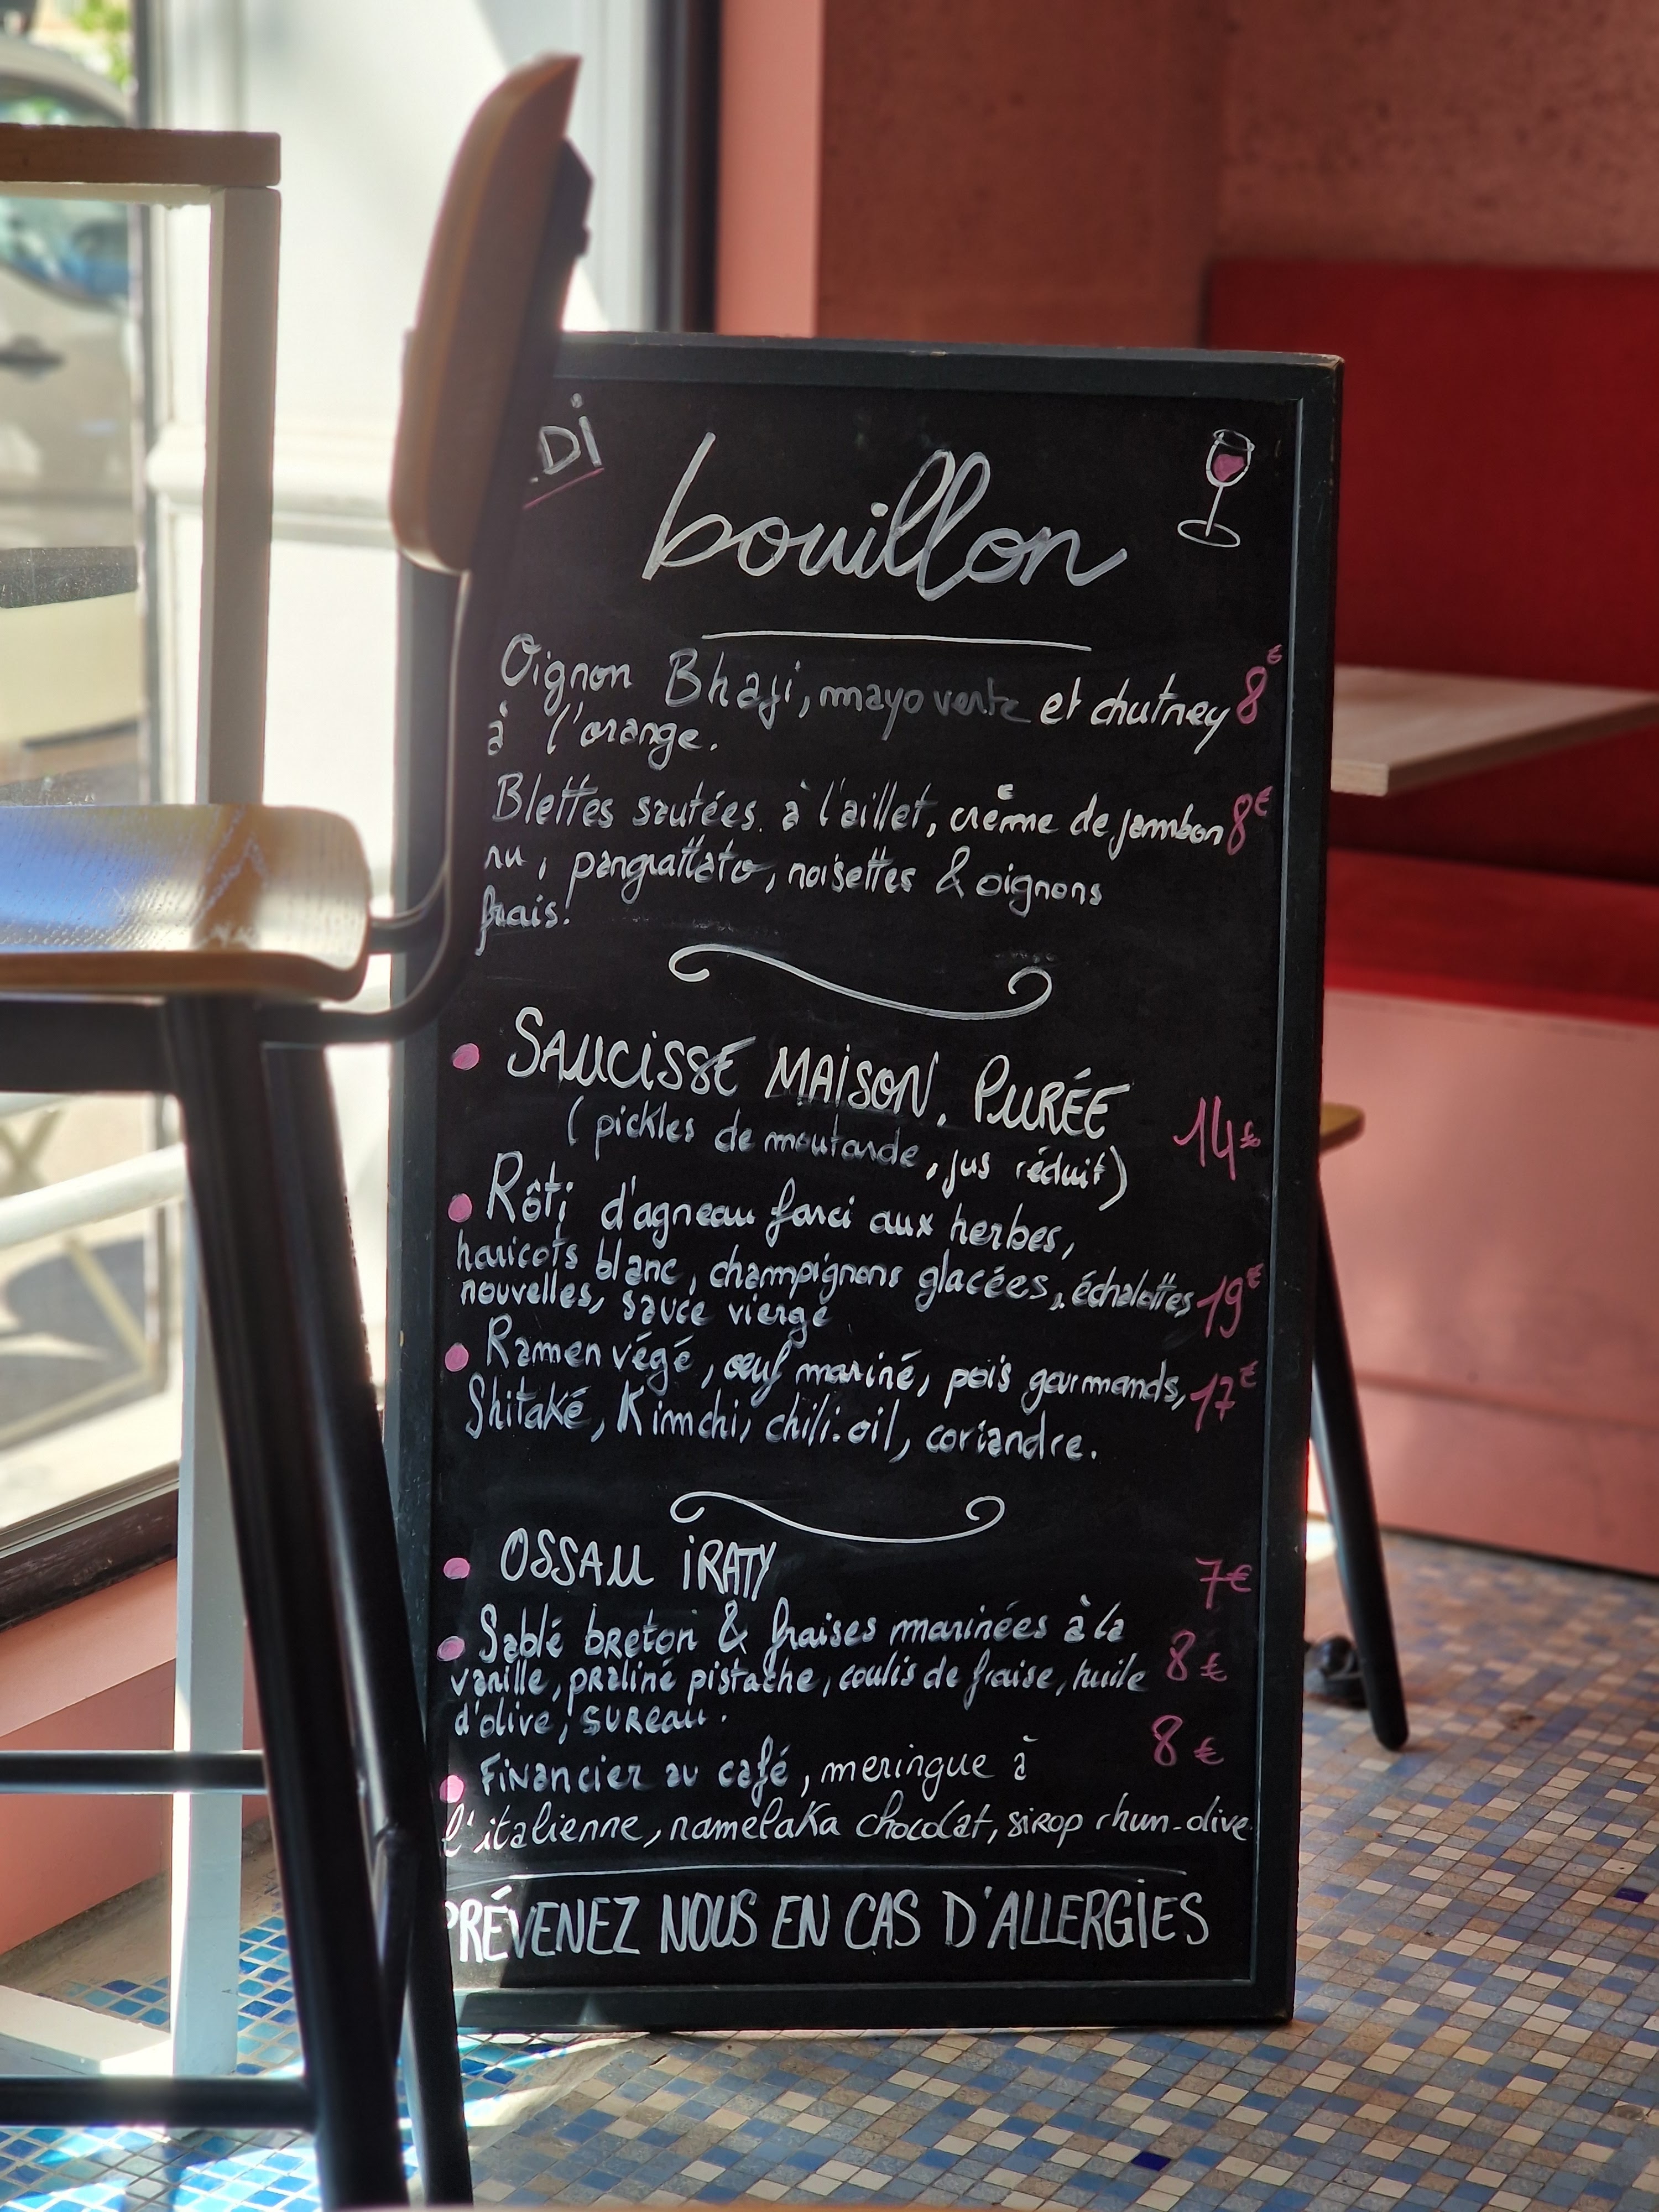 DI
bouillon
Oignon Bhaji, mayo verte et chutney 8€
à l'orange.
Blettes sautées à l'aillet, crème de jambon 8€
ru, pangrattato, noisettes & oignons
frais!
SAUCISSE MAISON, PURÉE
(pickles de moutarde, jus réduit) 14€
Rôti d'agneau farci aux herbes,
haricots blanc, champignons glacées, échalottes 19€
nouvelles, sauce vierge
Ramen végé, œuf mariné, pois gourmands, 17€
Shitaké, Kimchi, chili.oil, coriandre.
OSSAU IRATY 7€
Sablé breton & fraises marinées à la
vanille, praliné pistache, coulis de fraise, huile 8€
d'olive, sureau.
Financier au café, meringue à 8€
l'italienne, namelaka chocolat, sirop rhum-olive
PRÉVENEZ NOUS EN CAS D'ALLERGIES